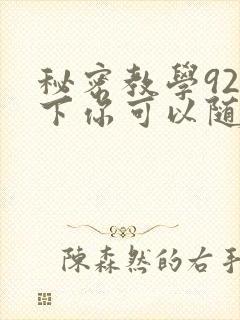 秘密教學92
下你可以随
陳森然的右手